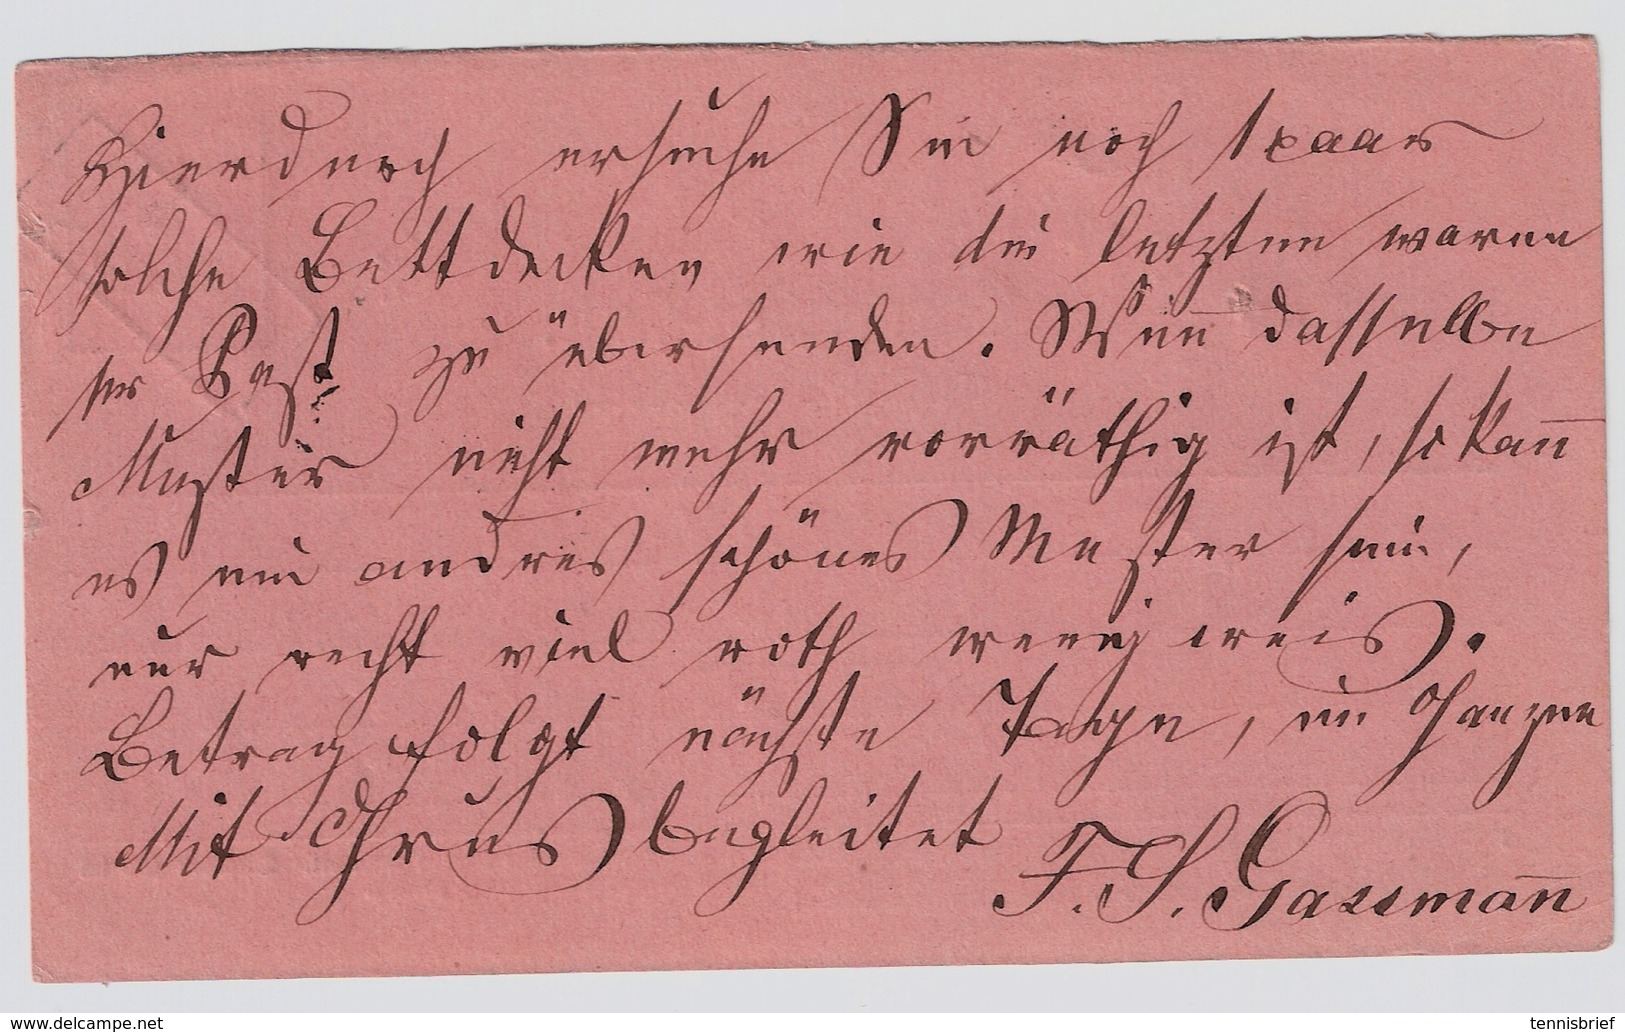 Hierdurch ersuche Sie noch 1 paar
solche Bettdecken wie die letzten waren
per Post zu übersenden. Wenn dasselbe
Muster nicht mehr vorräthig ist, so kan̅
es ein andres schönes Muster sein,
nur recht viel roth wenig weis.
Betrag folgt nächste Tage, im Ganzen
Mit Grus begleitet
F. S. Gassman̅
www.delcampe.net
tennisbrief